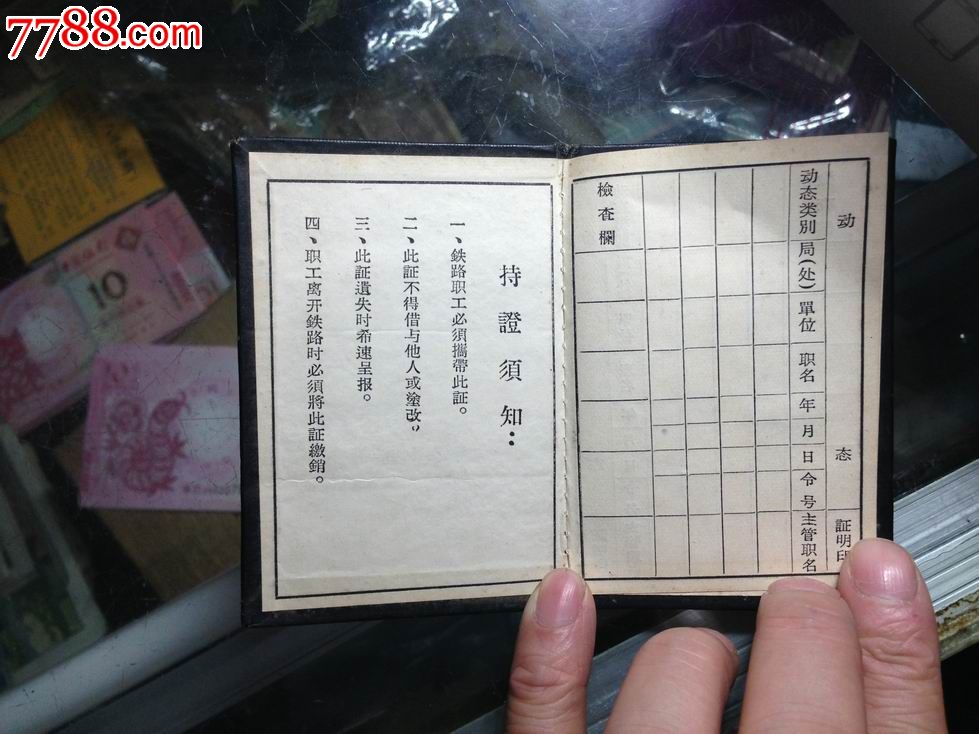 7788.com
动 态 証明印
动态类別 局(处) 單位 职名 年 月 日 令 号 主管职名
檢查欄
持證須知：
一、鉄路职工必須攜帶此証。
二、此証不得借与他人或塗改。
三、此証遺失时希速呈报。
四、职工离开鉄路时必須將此証繳銷。
10